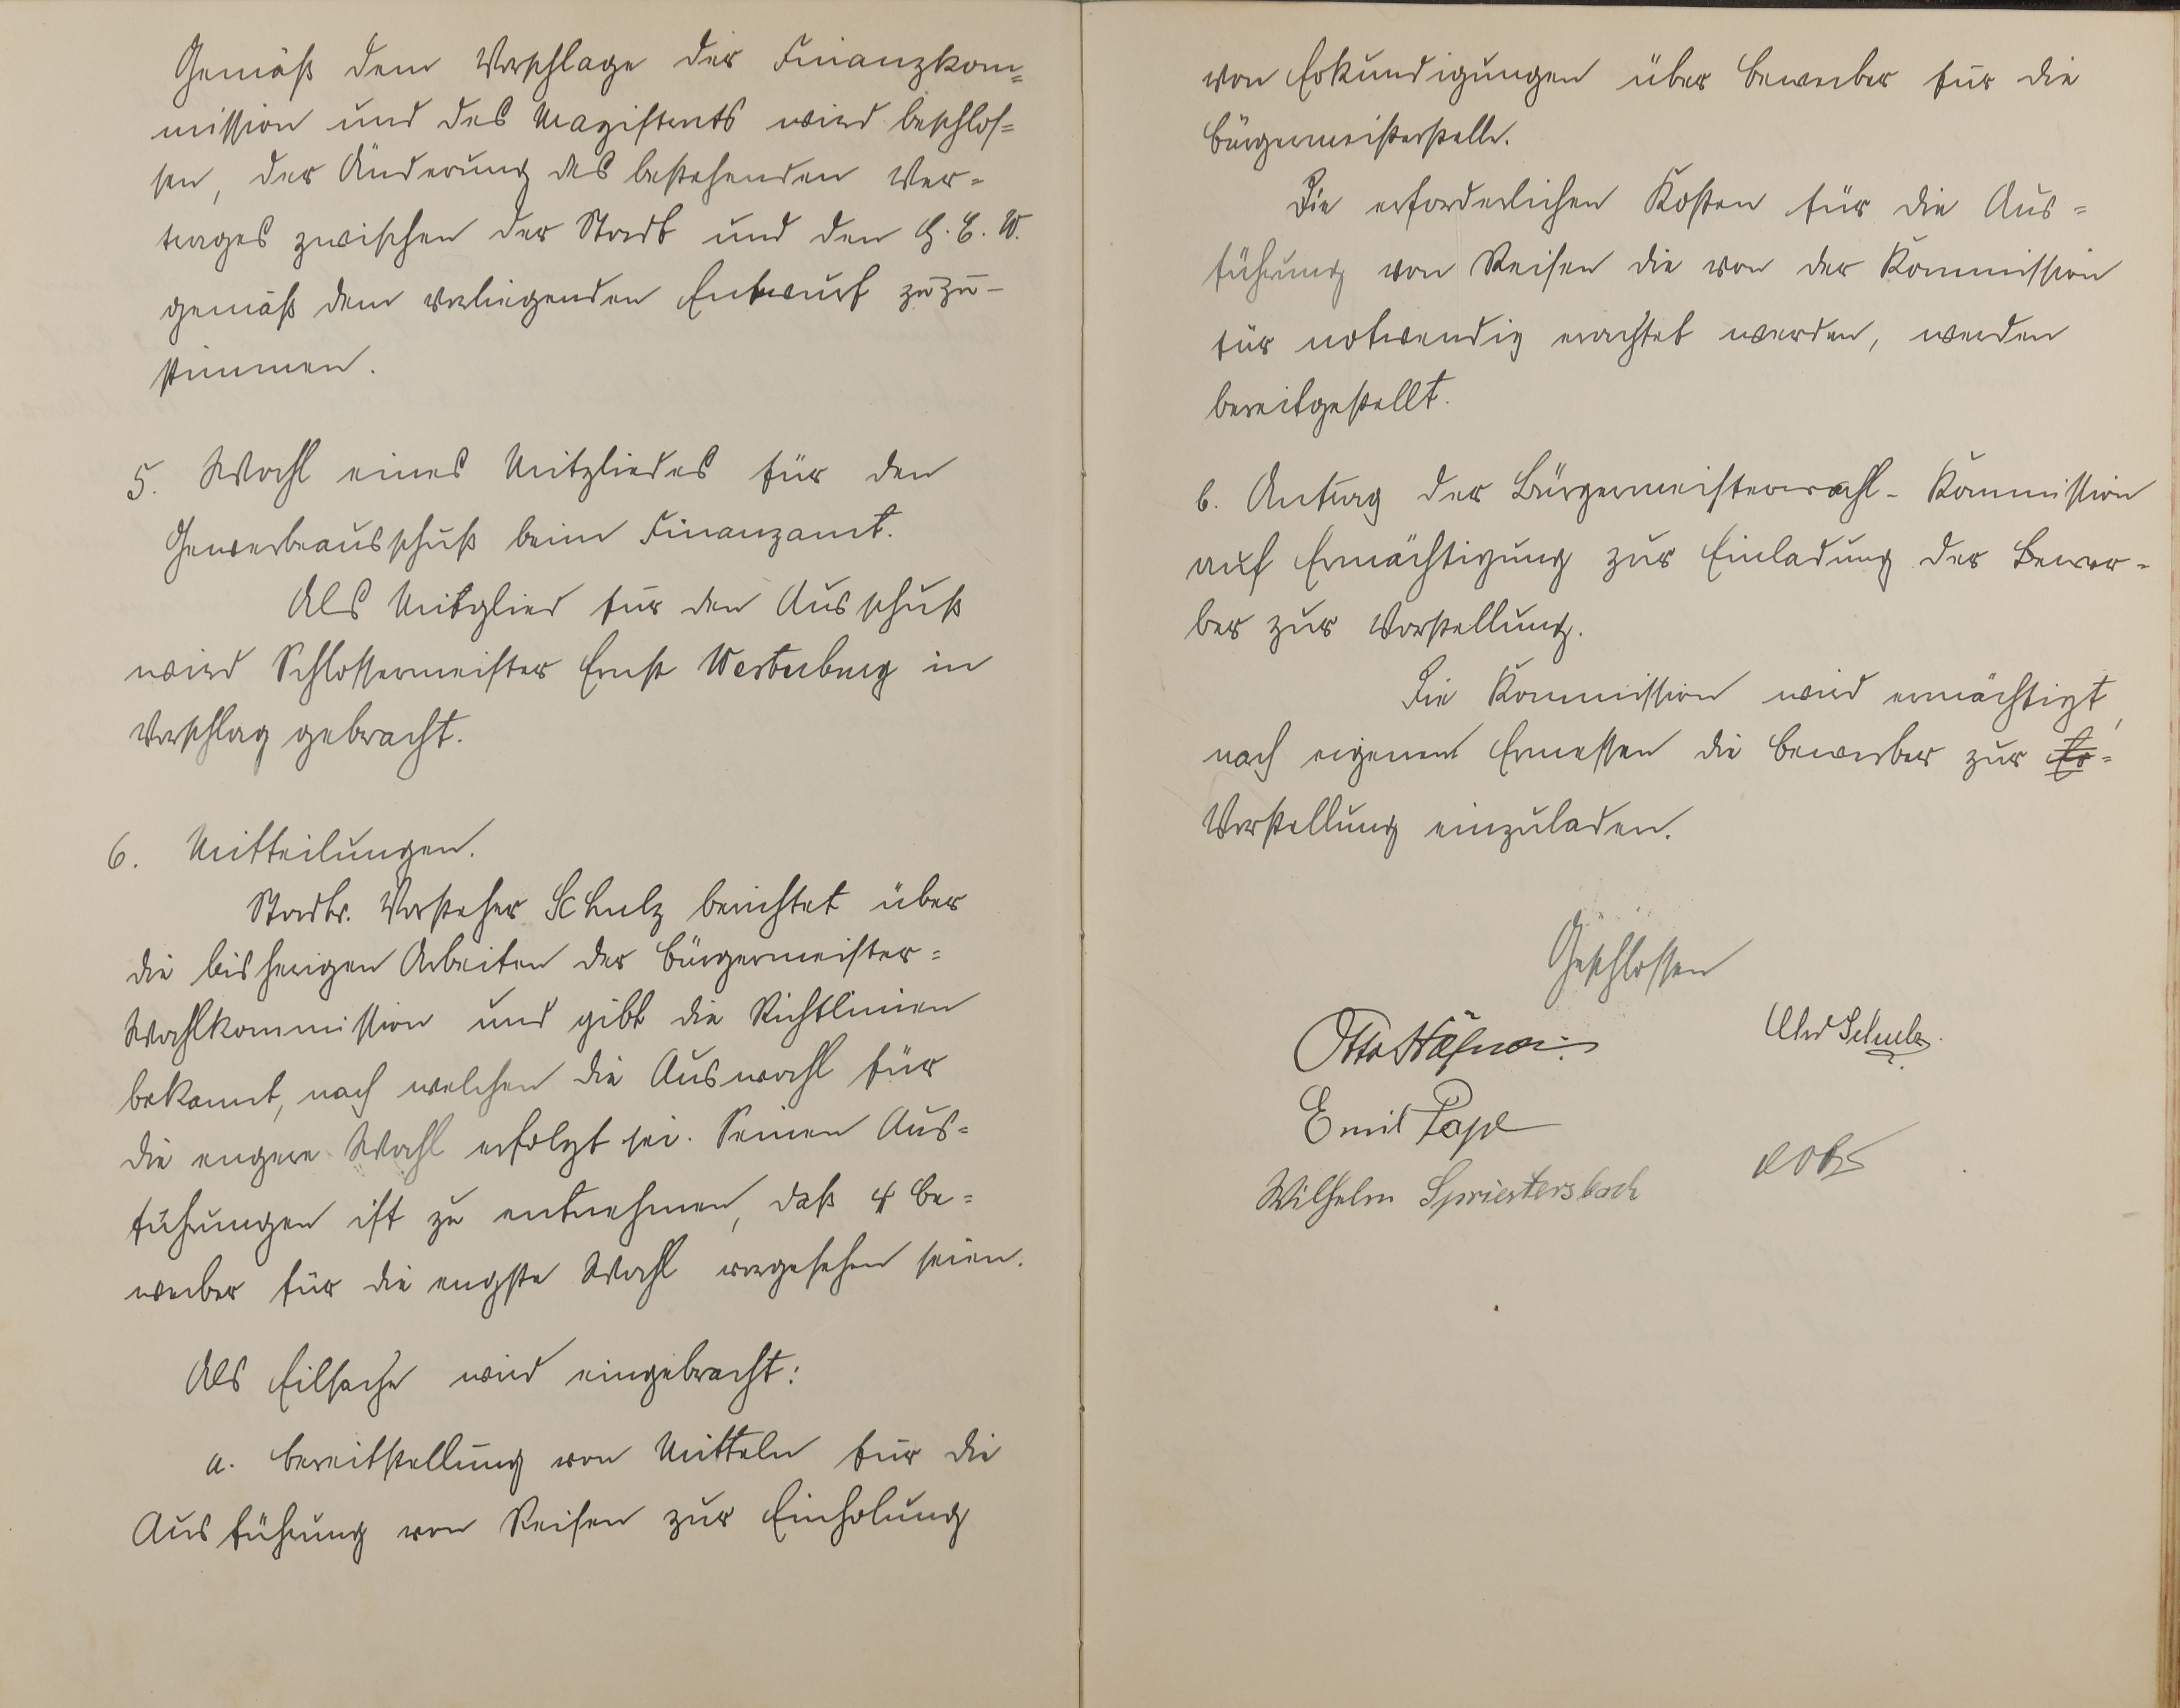 Gemäß dem Vorschlage der Finanzkom=
mission und des Magistrats wird beschlos=
sen, der Änderung des bestehenden Ver=
trages zwischen der Stadt und den G. E. W.
gemäß dem vorliegenden Entwurf zuzu-
stimmen.
5. Wahl eines Mitgliedes für den
Gewerbeausschuß beim Finanzamt.
Als Mitglied für den Ausschuß
wird Schlossermeister Ernst Westerburg in
Vorschlag gebracht.
6. Mitteilungen.
Stadtv. Vorsteher Schulz berichtet über
die bisherigen Arbeiten der Bürgermeister=
Wahlkommission und gibt die Richtlinien
bekannt, nach welchen die Auswahl für
die engere Wahl erfolgt sei. Seinen Aus=
führungen ist zu entnehmen, daß 4 Be=
werber für die engste Wahl vorgesehen seien.
Als Eilsache wird eingebracht:
a. Bereitstellung von Mitteln für die
Ausführung von Reisen zur Einholung
von Erkundigungen über Bewerber für die
Bürgermeisterstelle.
Die erforderlichen Kosten für die Aus=
führung von Reisen die von der Kommission
für notwendig erachtet werden, werden
bereitgestellt.
b. Antrag der Bürgermeisterwahl- Kommission
auf Ermächtigung zur Einladung der Bewer=
ber zur Vorstellung.
Die Kommission wird ermächtigt,
nach eigenem Ermessen die Bewerber zur Er=
Vorstellung einzuladen.
Geschlossen
Otto
Schulz.
Emil Pape
Wilhelm Spriestersbach